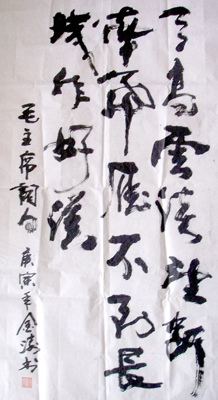 天高雲淡望斷
南飛雁不到長
城非好漢
毛主席詞句 庚寅年金书